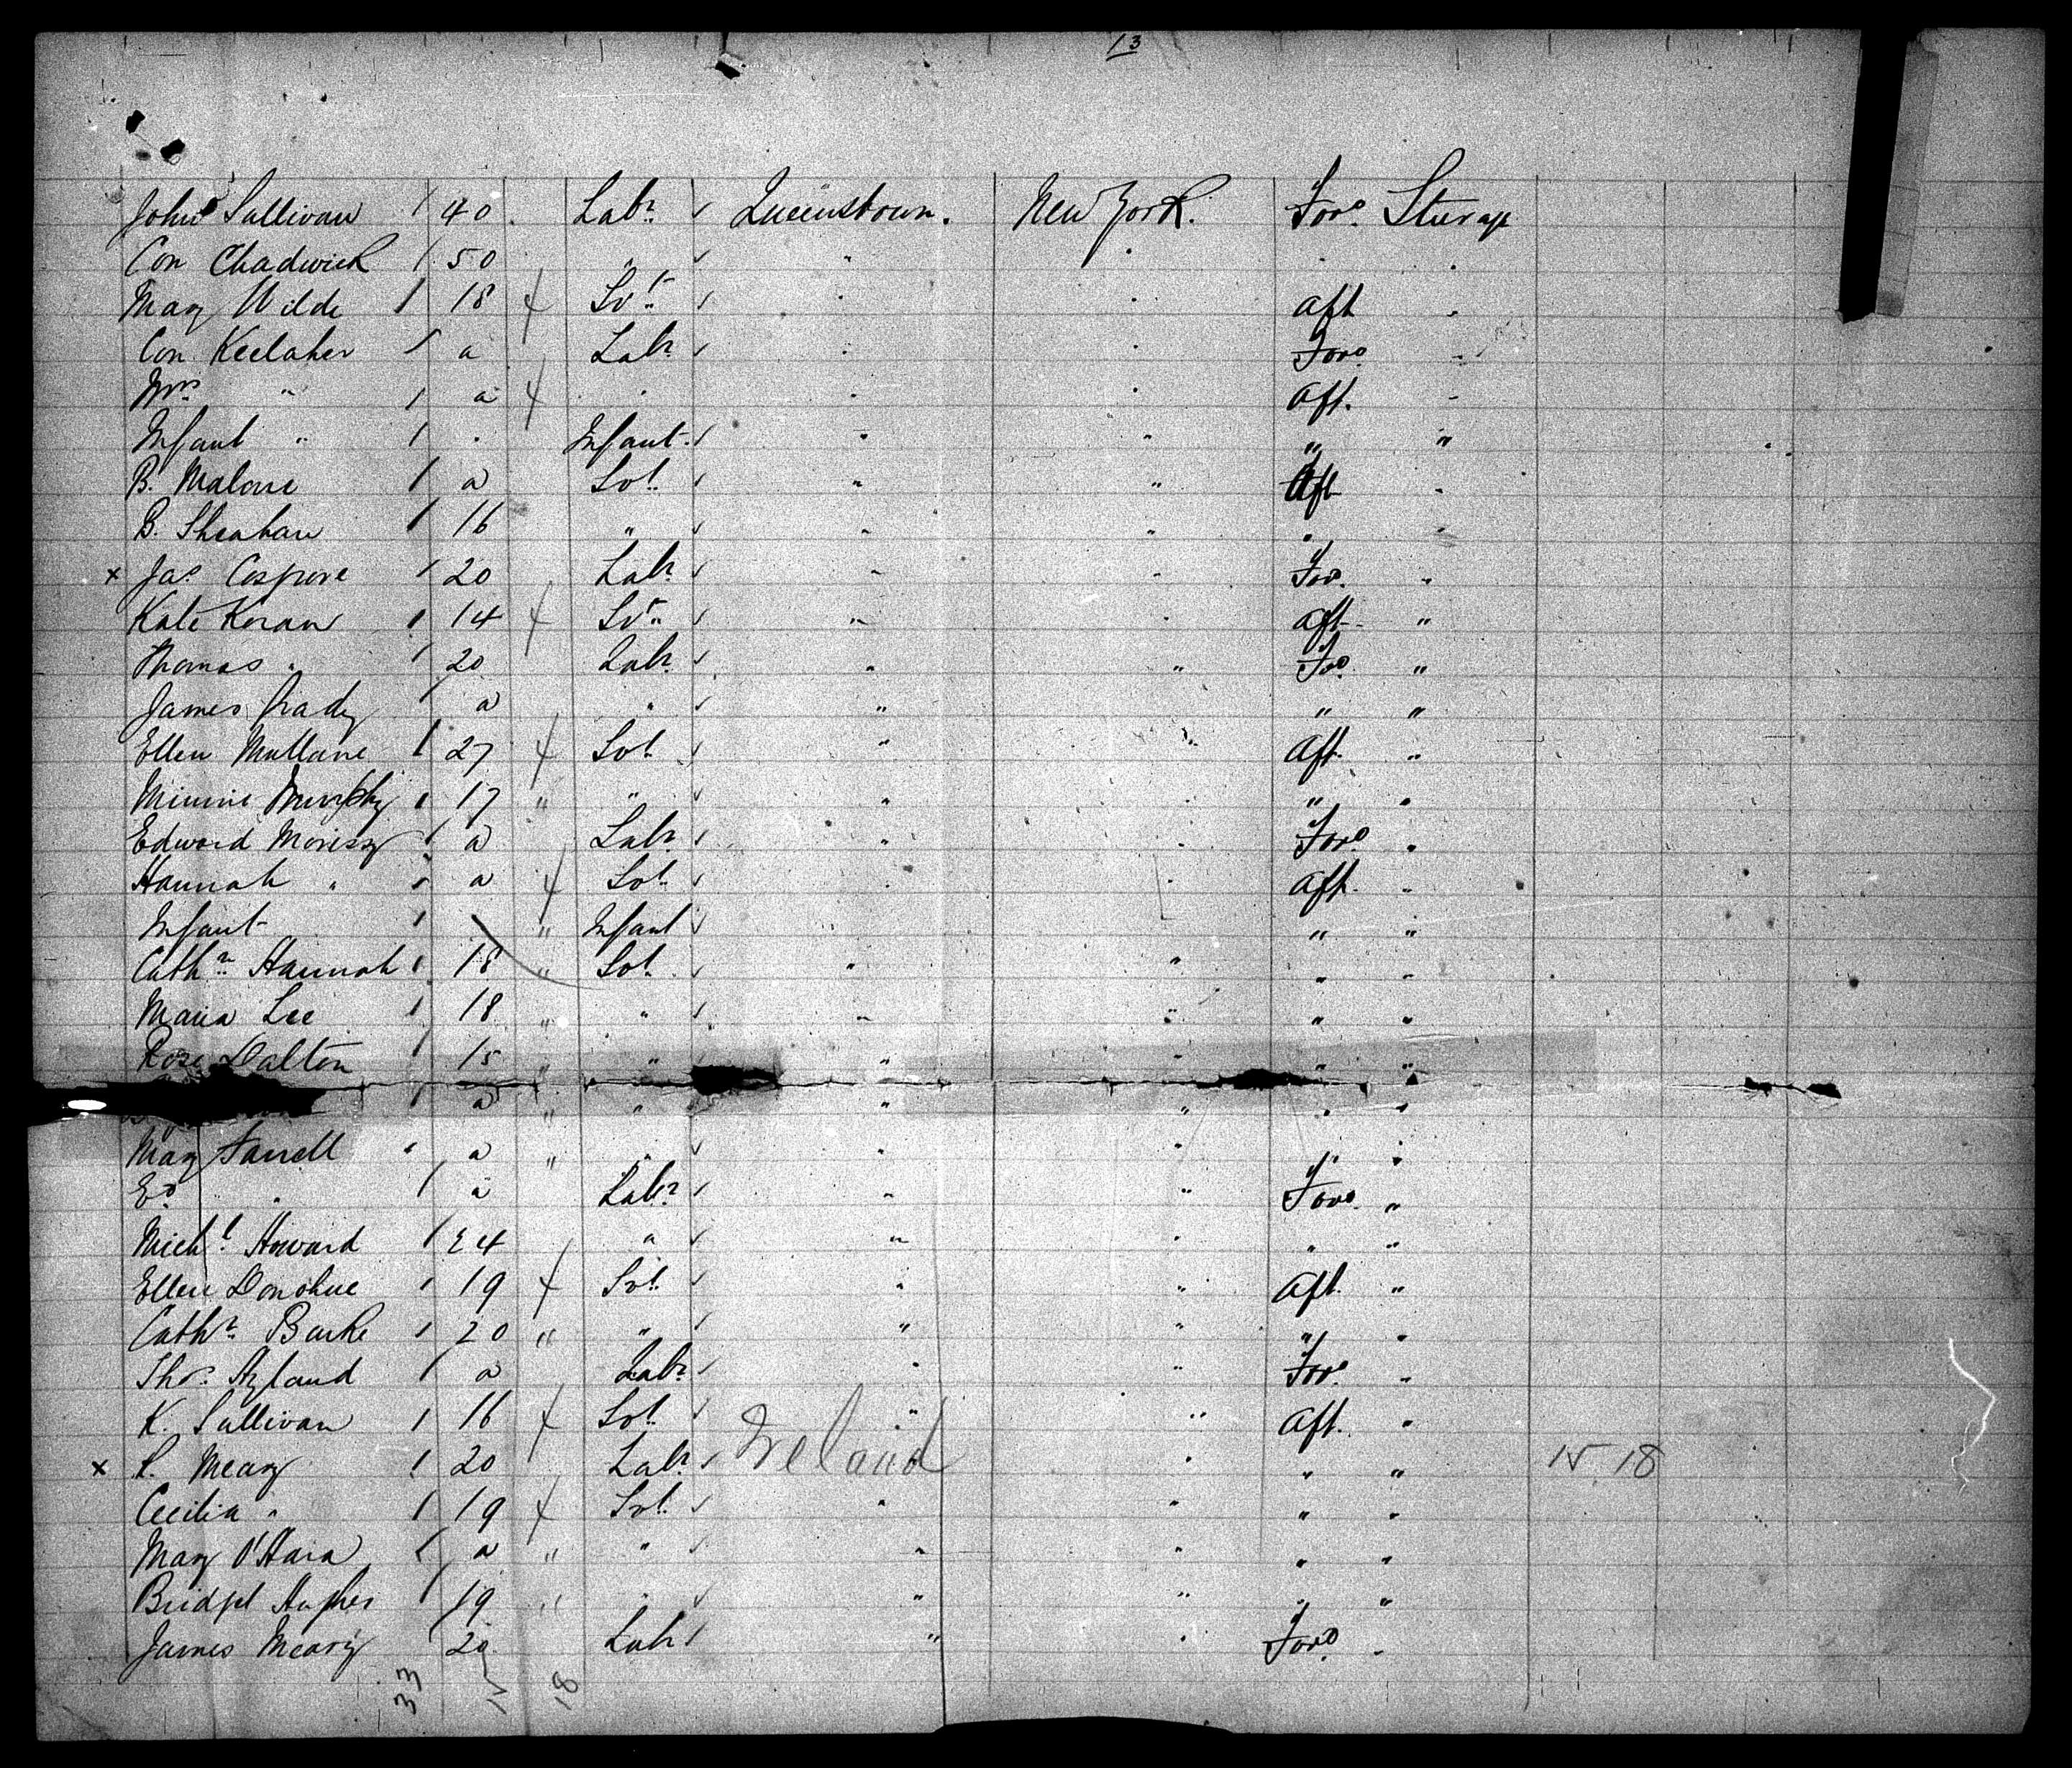 13
John Sullivan / 40 Labr ✓ Queenstown. New York. Ford Sterage
Con Chadwick / 50 " ✓ " " " "
Mary Wilde / 18 4 Svt ✓ " " Aft "
Con Keelaher / a Labr ✓ " " Ford "
Mrs " / a 4 " " " Aft. "
Infant " / " Infant ✓ " " " "
B. Malone / a Svt ✓ " " Aft "
B. Sheahan / 16 " ✓ " " " "
x Jas Cosgrove / 20 Labr ✓ " " Ford "
Kate Koran / 14 4 Svt ✓ " " Aft "
Thomas " / 20 Labr ✓ " " Ford "
James Grady / a " ✓ " " " "
Ellen Mullane / 27 4 Svt ✓ " " Aft. "
Minnie Murphy / 17 " " ✓ " " " "
Edward Morissy / a Labr ✓ " " Ford "
Hannah " / a 4 Svt ✓ " " Aft. "
Infant / " Infant ✓ " "
Cathn Hannah / 18 " Svt ✓ " " " "
Maria Lee / 18 " " ✓ " " " "
Rose Dalton / 15 " " ✓ " " " "
/ a " " " " " "
Mary Farrell / a " " ✓ " " " "
Ed " / a Labr ✓ " " Ford "
Michl Howard / 24 " ✓ " " " "
Ellen Donohue / 19 4 Svt ✓ " " Aft. "
Cathn Burke / 20 " " ✓ " " " "
Thos Hyland / a Labr ✓ " " Ford "
K. Sullivan / 16 4 Svt ✓ " " Aft. "
x P. Meary / 20 Labr ✓ Ireland " " " 15 18
Cecilia " / 19 4 Svt ✓ " " " "
Mary O'Hara / a " " ✓ " " " "
Bridget Hughes / 19 " " ✓ " " " "
James Meary / 20 Labr ✓ " " Ford "
33 15 18